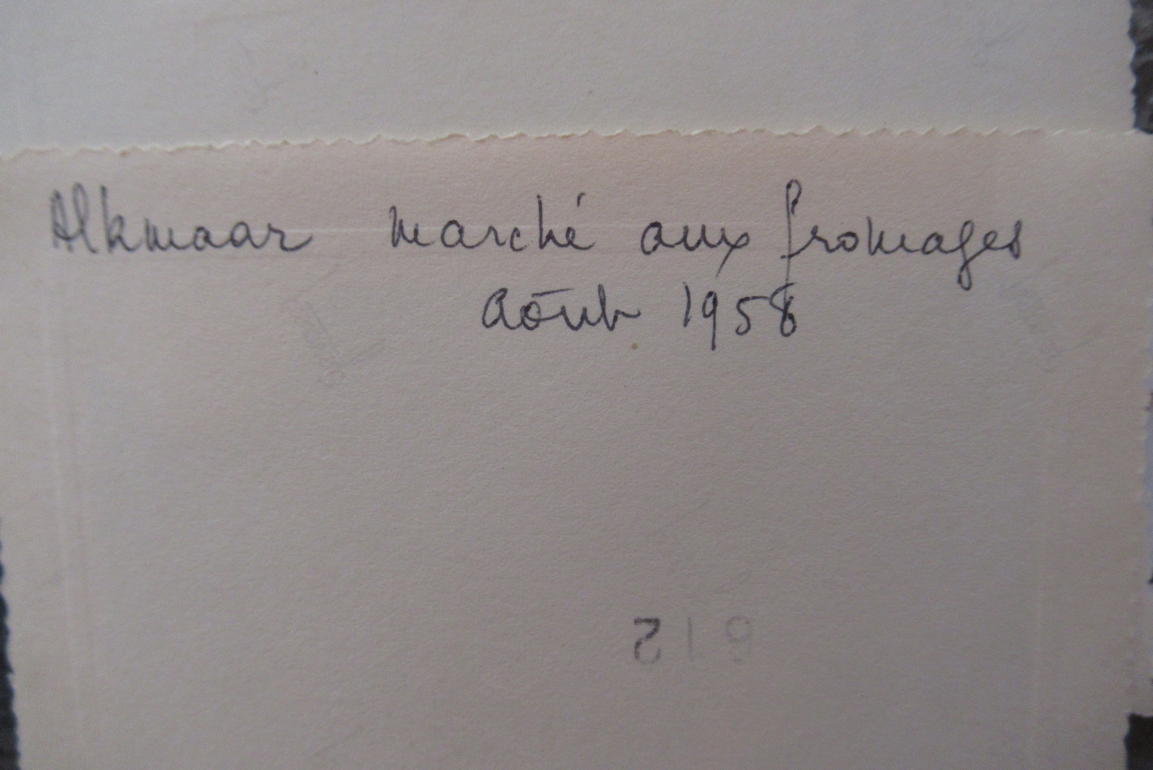 Alkmaar marché aux fromages
Août 1958
612